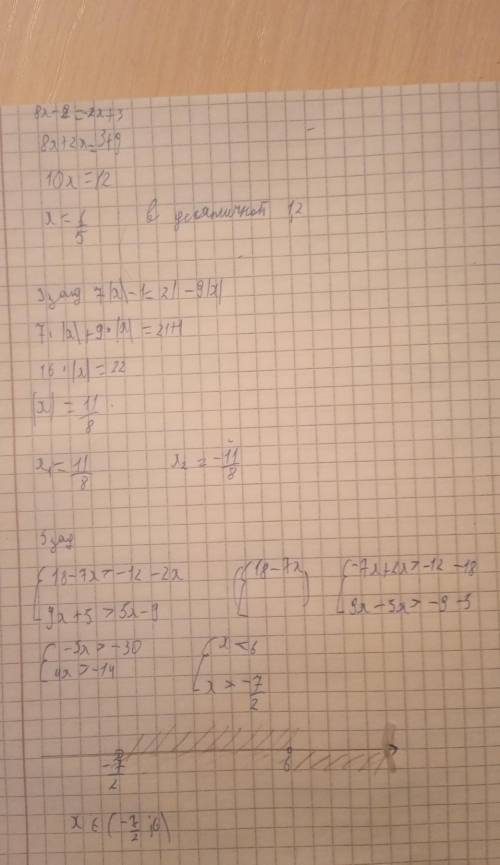 8x-9=-2x+3
8x+2x=3+9
10x=12
x=6/5 в десятичной 1,2
3 зад 7|x|-1=21-9|x|
7·|x|+9·|x|=21+1
16·|x|=22
|x|=11/8
x₁=11/8 x₂=-11/8
5 зад
{18-7x>-12-2x {18-7x {-7x+2x>-12-18
9x+5>5x-9 9x-5x>-9-5
{-5x>-30 {x<6
4x>-14 x>-7/2
-7/2 6
x∈(-7/2;6)